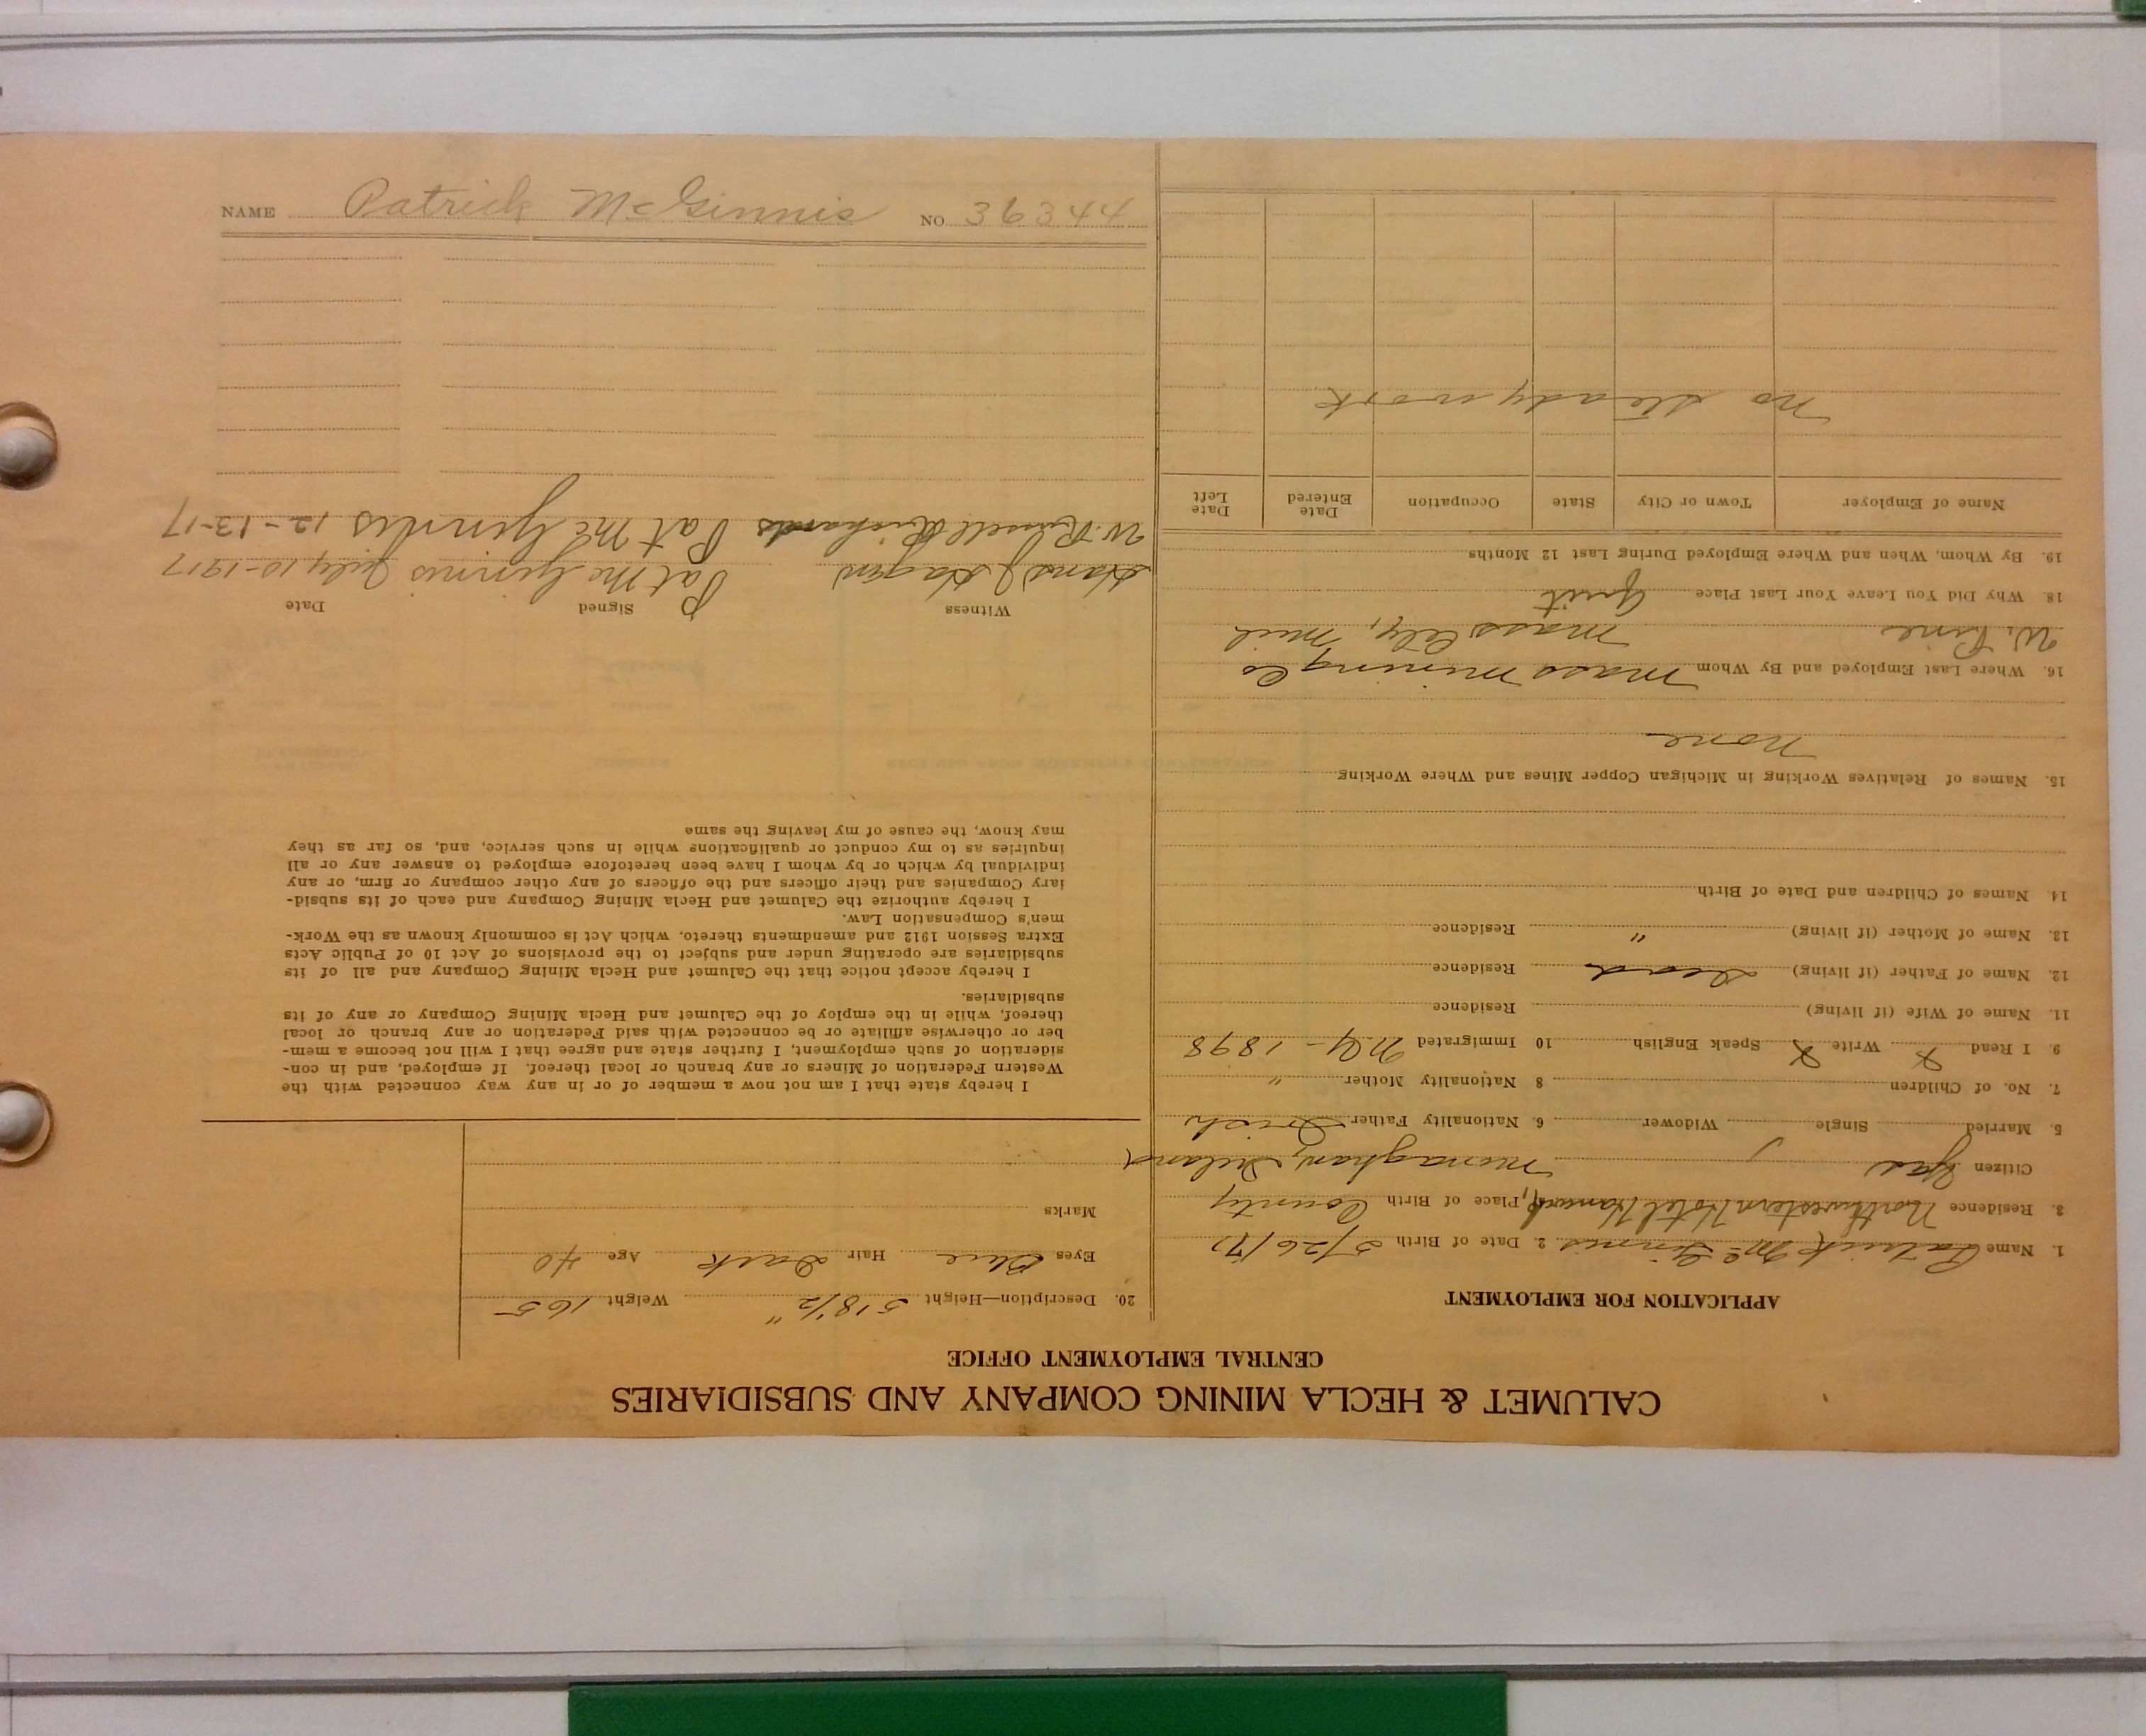 CALUMET & HECLA MINING COMPANY AND SUBSIDIARIES
CENTRAL EMPLOYMENT OFFICE
APPLICATION FOR EMPLOYMENT
1. Name Patrick McGinnis 2. Date of Birth 3/26/77
3. Residence Northwestern Hotel Hancock, Place of Birth County
Citizen Yes Monaghan, Ireland
5. Married Single Widower 6. Nationality Father Irish
7. No. of Children 8 Nationality Mother "
9. I Read X Write X Speak English 10 Immigrated N.Y - 1898
11. Name of Wife (if living) Residence
12. Name of Father (if living) Dead Residence
13. Name of Mother (if living) " Residence
14. Names of Children and Date of Birth
15. Names of Relatives Working in Michigan Copper Mines and Where Working
None
16. Where Last Employed and By Whom Mass Mining Co
W. Pine Mass City, Mich
18. Why Did You Leave Your Last Place Quit
19. By Whom, When and Where Employed During Last 12 Months
Name of Employer Town or City State Occupation Date Entered Date Left
No steady work
20. Description—Height 5' 8 1/2" Weight 165
Eyes Blue Hair Dark Age 40
Marks
I hereby state that I am not now a member of or in any way connected with the
Western Federation of Miners or any branch or local thereof. If employed, and in con-
sideration of such employment, I further state and agree that I will not become a mem-
ber or otherwise affiliate or be connected with said Federation or any branch or local
thereof, while in the employ of the Calumet and Hecla Mining Company or any of its
subsidiaries.
I hereby accept notice that the Calumet and Hecla Mining Company and all of its
subsidiaries are operating under and subject to the provisions of Act 10 of Public Acts
Extra Session 1912 and amendments thereto, which Act is commonly known as the Work-
men's Compensation Law.
I hereby authorize the Calumet and Hecla Mining Company and each of its subsid-
iary Companies and their officers and the officers of any other company or firm, or any
individual by which or by whom I have been heretofore employed to answer any or all
inquiries as to my conduct or qualifications while in such service, and, so far as they
may know, the cause of my leaving the same
Witness Signed Date
Hans J Hagen Pat McGinnis July 10-1917
W. Russell Richards Pat McGinnis 12-13-17
NAME Patrick McGinnis NO. 36344